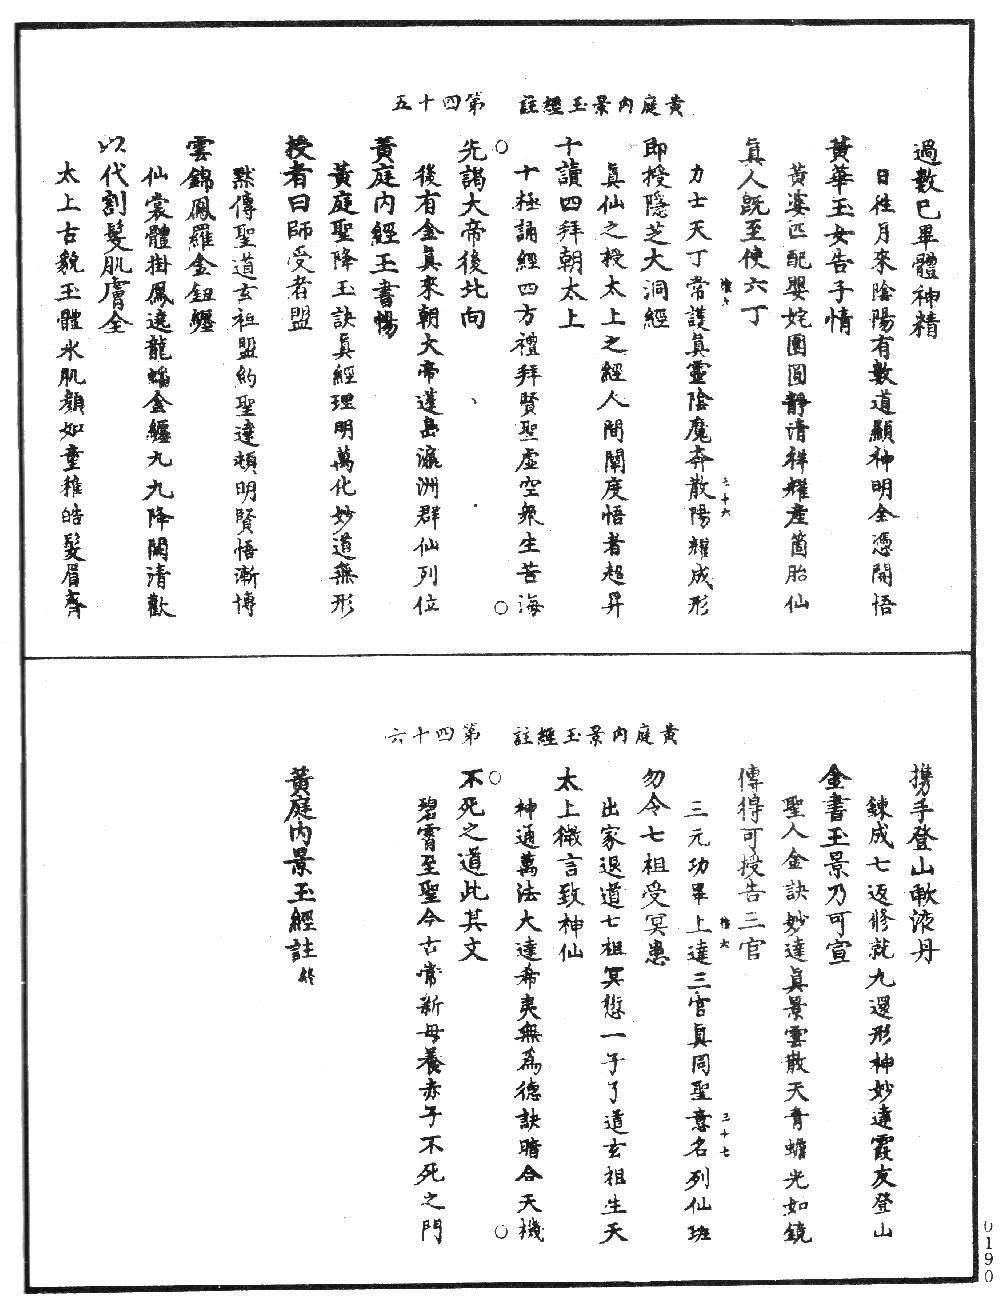 黄庭内景玉經註　第四十五
過數已畢體神精
日往月來陰陽有數道顯神明全憑開悟
黄華玉女告子情
黄婆匹配嬰姹團圓靜清祥耀產箇胎仙
真人既至使六丁
力士天丁常護真靈陰魔奔散陽耀成形
即授隱芝大洞經
真仙之授太上之經人間闡度悟者超昇
十讀四拜朝太上
十極誦經四方禮拜賢聖虛空衆生苦海
先謁大帝後北向
後有金真來朝大帝蓬島瀛洲群仙列位
黄庭内經玉書暢
黄庭聖降玉訣真經理明萬化妙道無形
授者曰師受者盟
默傳聖道玄祖盟約聖達頓明賢悟漸博
雲錦鳳羅金鈕纏
仙裳體掛鳳遶龍蟠金纏九九降闕清歡
以代割髮肌膚全
太上古貌玉體氷肌顏如童稚皓髮眉齊
三十六
黄庭内景玉經註　第四十六
攜手登山歃液丹
鍊成七返修就九還形神妙達霞友登山
金書玉景乃可宣
聖人金訣妙達真景雲散天青蟾光如鏡
傳得可授告三官
三元功畢上達三官真同聖意名列仙班
勿令七祖受冥患
出家退道七祖冥愆一子了道玄祖生天
太上微言致神仙
神通萬法大達希夷無爲德訣暗合天機
不死之道此其文
碧霄至聖今古常新母養赤子不死之門
三十七
黄庭内景玉經註終
0190